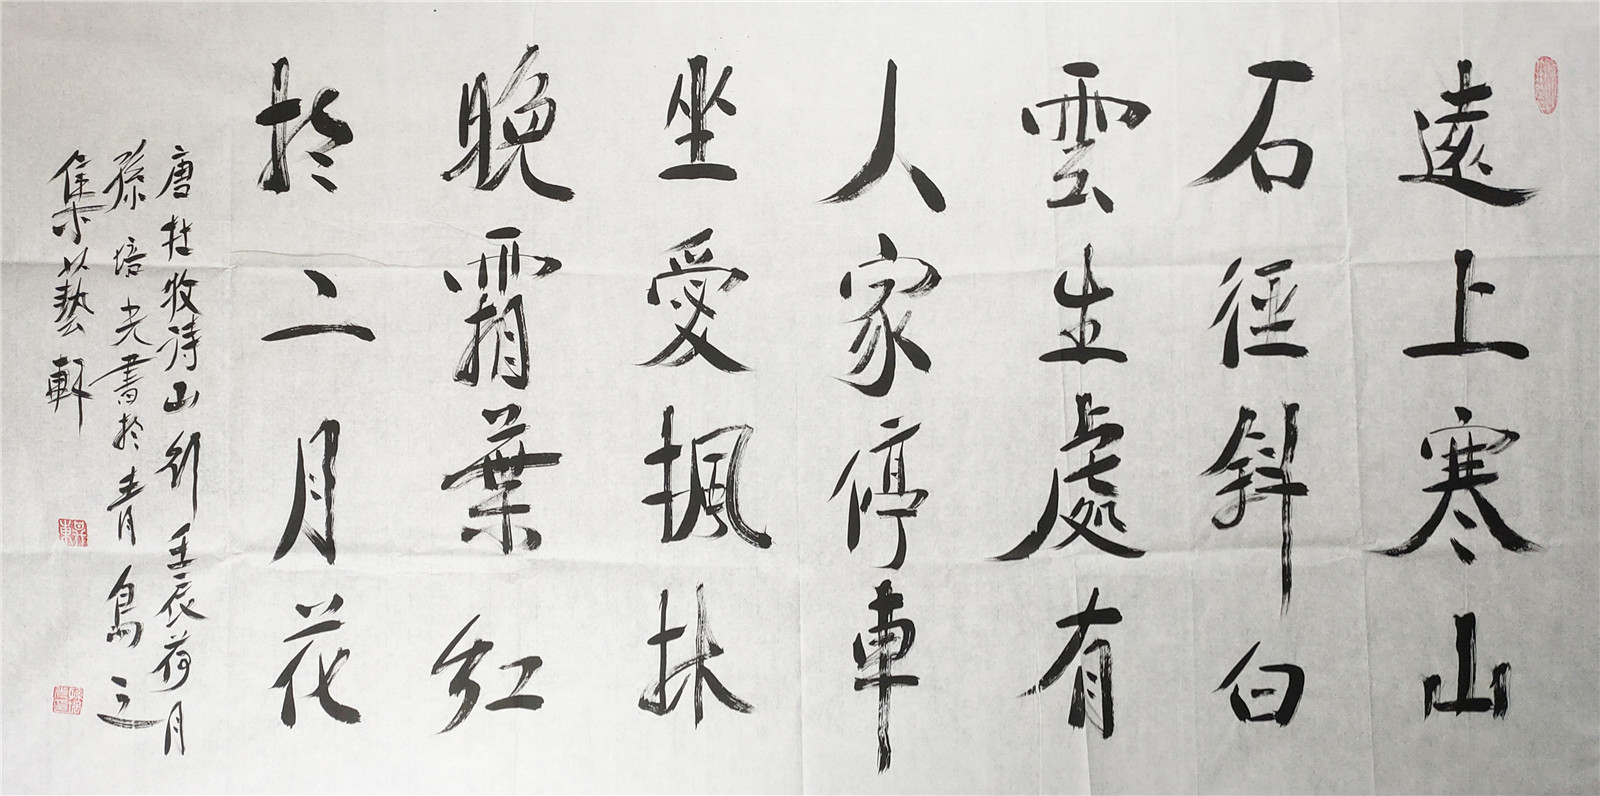 遠上寒山
石徑斜白
雲生處有
人家停車
坐愛楓林
晚霜葉紅
於二月花
唐杜牧詩山行壬辰荷月
孫培光書於青島之
集以藝軒